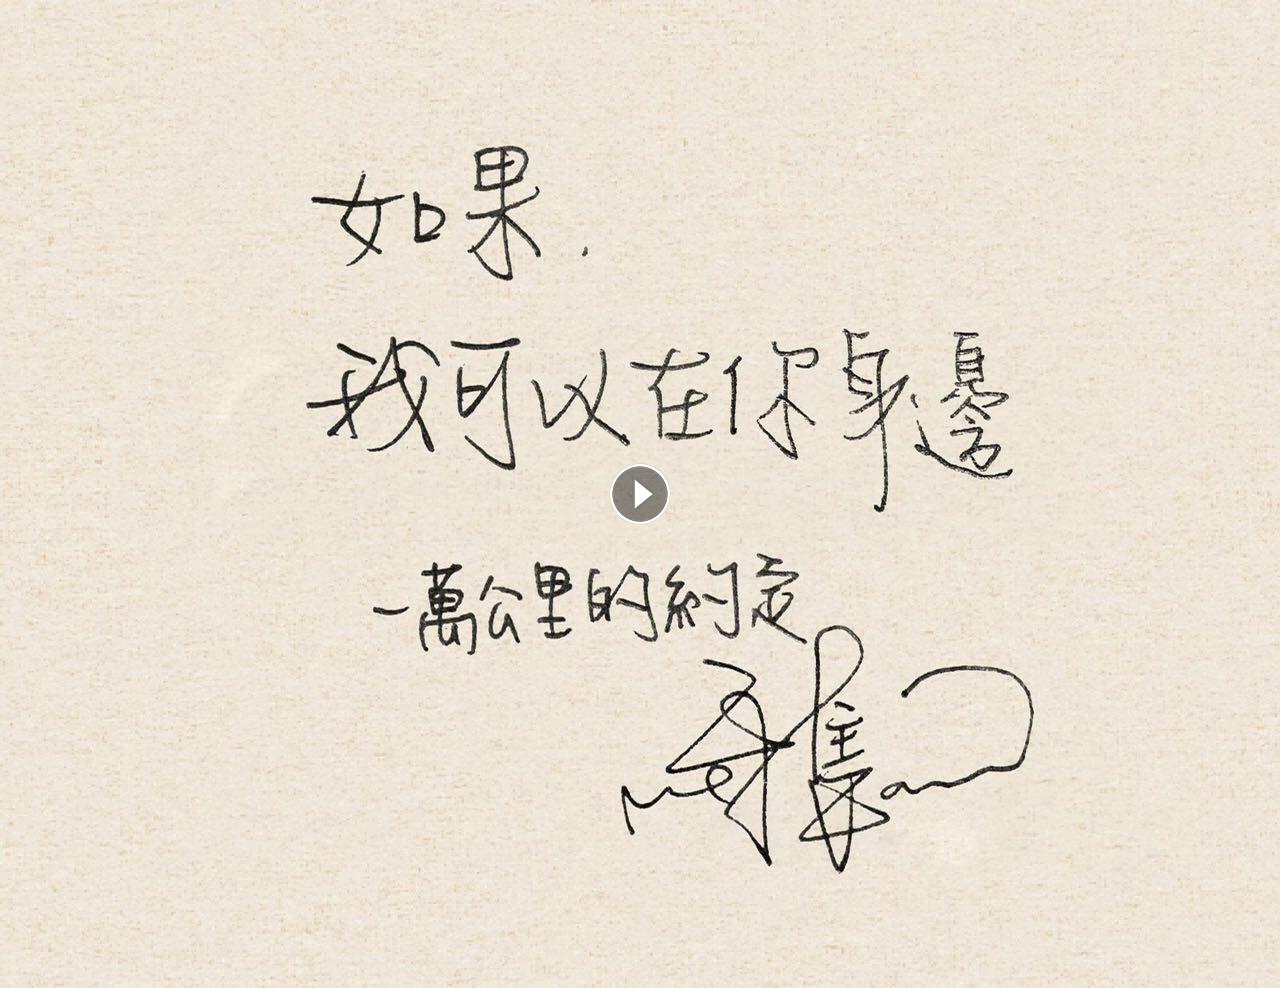 如果.
我可以在你身邊
一萬公里的約定